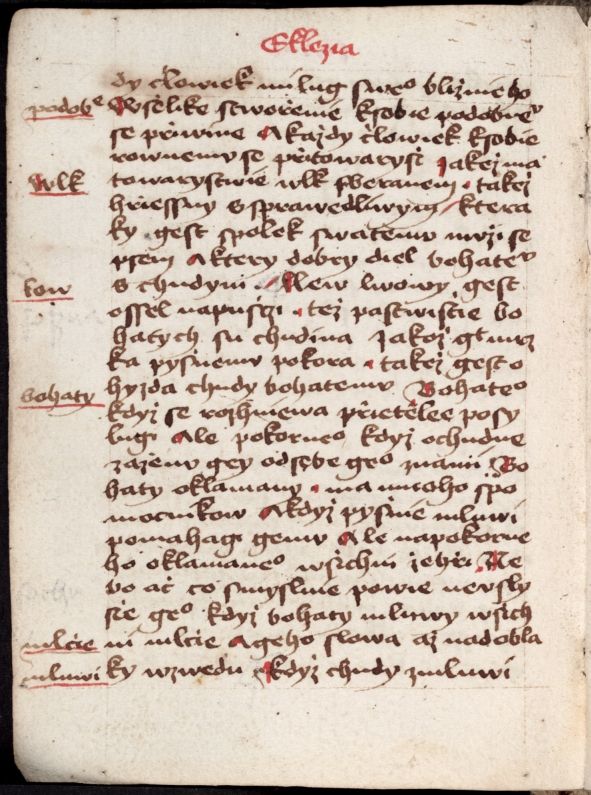 Eklezia
dy člowiek milug sweo bližnieho
podobe Wšelike stworženie ksobie podobneo
se prиwine A každy člowiek ksobie
rownemu se pritowaryši Jakež ma
Wlk towarystwie wlk sberanem takež
hriessny s sprawedliwym ktera
ky gest spolek swatemu muži se
psem A ktery dobry diel bohateo
s chudym
Lew Lew lwowy gest
ossel napušči też pastwištie bo
hatych su chudina Jakož gt mrz
ka pysnemu pokora takež gest o
hyzda chudy bohatemu Bohateo
bohaty když se rozhniewa prietelee posy
lugi Ale pokorneo když ochudne
zazenu gey odsebe geo znami Bo
haty oklamany ma mnoho spo
mocnikow A kdyz pysnie mluwi
pomahagi gemu Ale napokorne
ho oklamaneo wsichni żehři Ne
bo ač co smyslnie powie neusly
šie geo kdyż bohaty mluwy wsich
mlcie ni mlcie A geho slowa až nadobla
mluwi ky wzwedu A kdyż chudy zmluwi